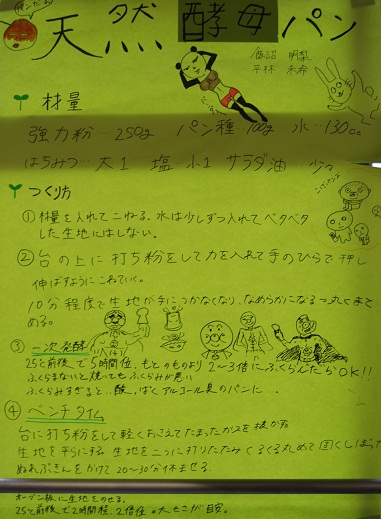 天然酵母パン
飯沼 明梨
平林 未希
材量
強力粉…250g パン種…100g 水…130cc
はちみつ…大1 塩 小1 サラダ油…少々
つくり方
①材量を入れてこねる。水は少しずつ入れてベタベタ
した生地にはしない。
②台の上に打ち粉をして力を入れて手のひらで押し
伸ばすようにこねていく。
10分程度で生地が手につかなくなり、なめらかになる→丸くまと
める。
③一次発酵
25℃前後で5時間位。もとのものより2~3倍にふくらんだらOK!!
ふくらまないと焼いてもふくらみが悪い
ふくらみすぎると…酸っぱくアルコール臭のパンに…
④ベンチタイム
台に打ち粉をして軽くおさえてたまったガスを抜がる
生地を平らにする 生地を二つに打りたたみくるくる丸めて固くしまった
ぬれぶきんをかけて20~30分休ませる。
オーブン板に生地をのせる。
25℃前後で2時間程。2倍位の大きさが目安。